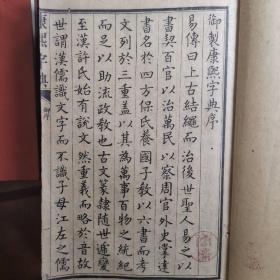 御製康熙字典序
易傳曰上古結繩而治後世聖人易之以
書契百官以治萬民以察周官外史掌達
書名於四方保氏養國子教以六書而考
文列於三重蓋以其為萬事百物之統紀
而足以助流政教也古文篆隸隨世遞變
至漢許氏始有說文然重義而略於音故
世謂漢儒識文字而不識子母江左之儒
康熙字典